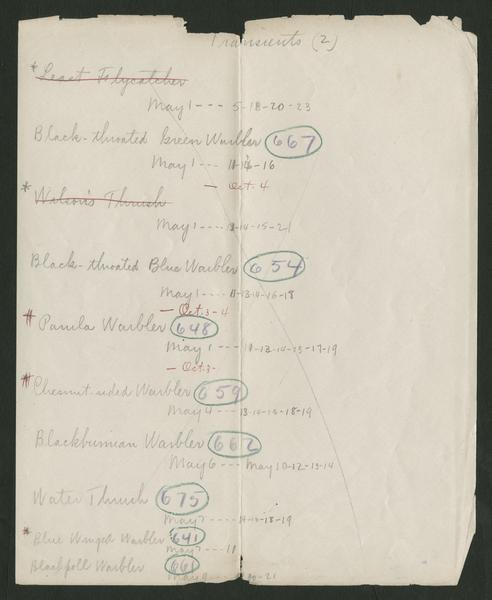 Transients (2)
* Least Flycatcher
May 1 --- 5-18-20-23
Black-throated Green Warbler 667
May 1 --- 11-16-16
- Oct. 4
* Wilson's Thrush
May 1 --- 13-14-15-21
Black-throated Blue Warbler 654
May 1 ---- 11-13-14-16-18
- Oct. 3-4
# Parula Warbler 648
May 1 --- 11-13-14-15-17-19
- Oct. 3-
# Chesnut-sided Warbler 659
May 4 --- 13-14-15-18-19
Blackburnian Warbler 662
May 6 --- May 10-12-13-14
Water Thrush 675
May 7 --- 14-15-18-19
* Blue Winged Warbler 641
May 7 --- 11
Blackpoll Warbler 661
May 9 20-21